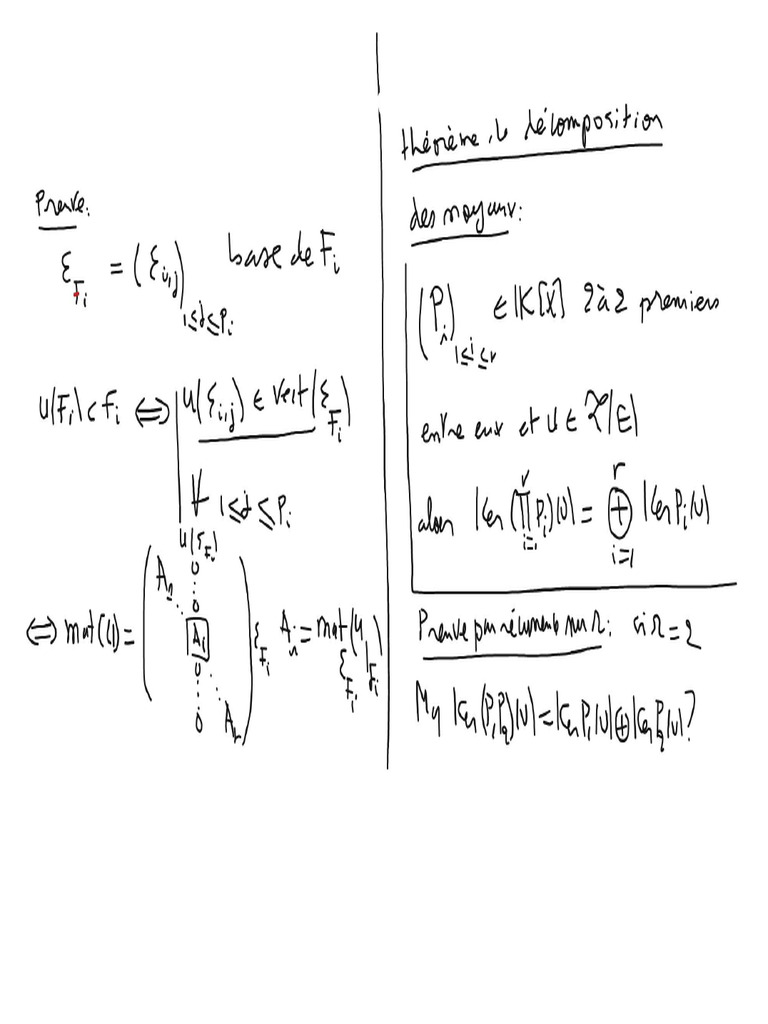 Preuve:
ε_{F_i} = (ε_{i,j})_{1≤j≤p_i} base de F_i
u(F_i) ⊂ F_i ⟺ u(ε_{i,j}) ∈ Vect(ε_{F_i})
∀ 1≤j≤p_i
u(ε_{F_i})
⟺ mat(u) = ( A_1 ⋱ 0 ⋮ 0 A_i 0 ⋮ 0 ⋱ A_r ) ε_{F_i} A_i = mat_{ε_{F_i}}(u|_{F_i})
théorème de décomposition
des noyaux:
(P_i)_{1≤i≤r} ∈ K[X] 2 à 2 premiers
entre eux et u ∈ L(E)
alors Ker(∏_{i=1}^{r} P_i)(u) = ⊕_{i=1}^{r} Ker P_i(u)
Preuve par récurrence sur r: si r=2
Mq Ker(P_1P_2)(u) = Ker P_1(u) ⊕ Ker P_2(u)?